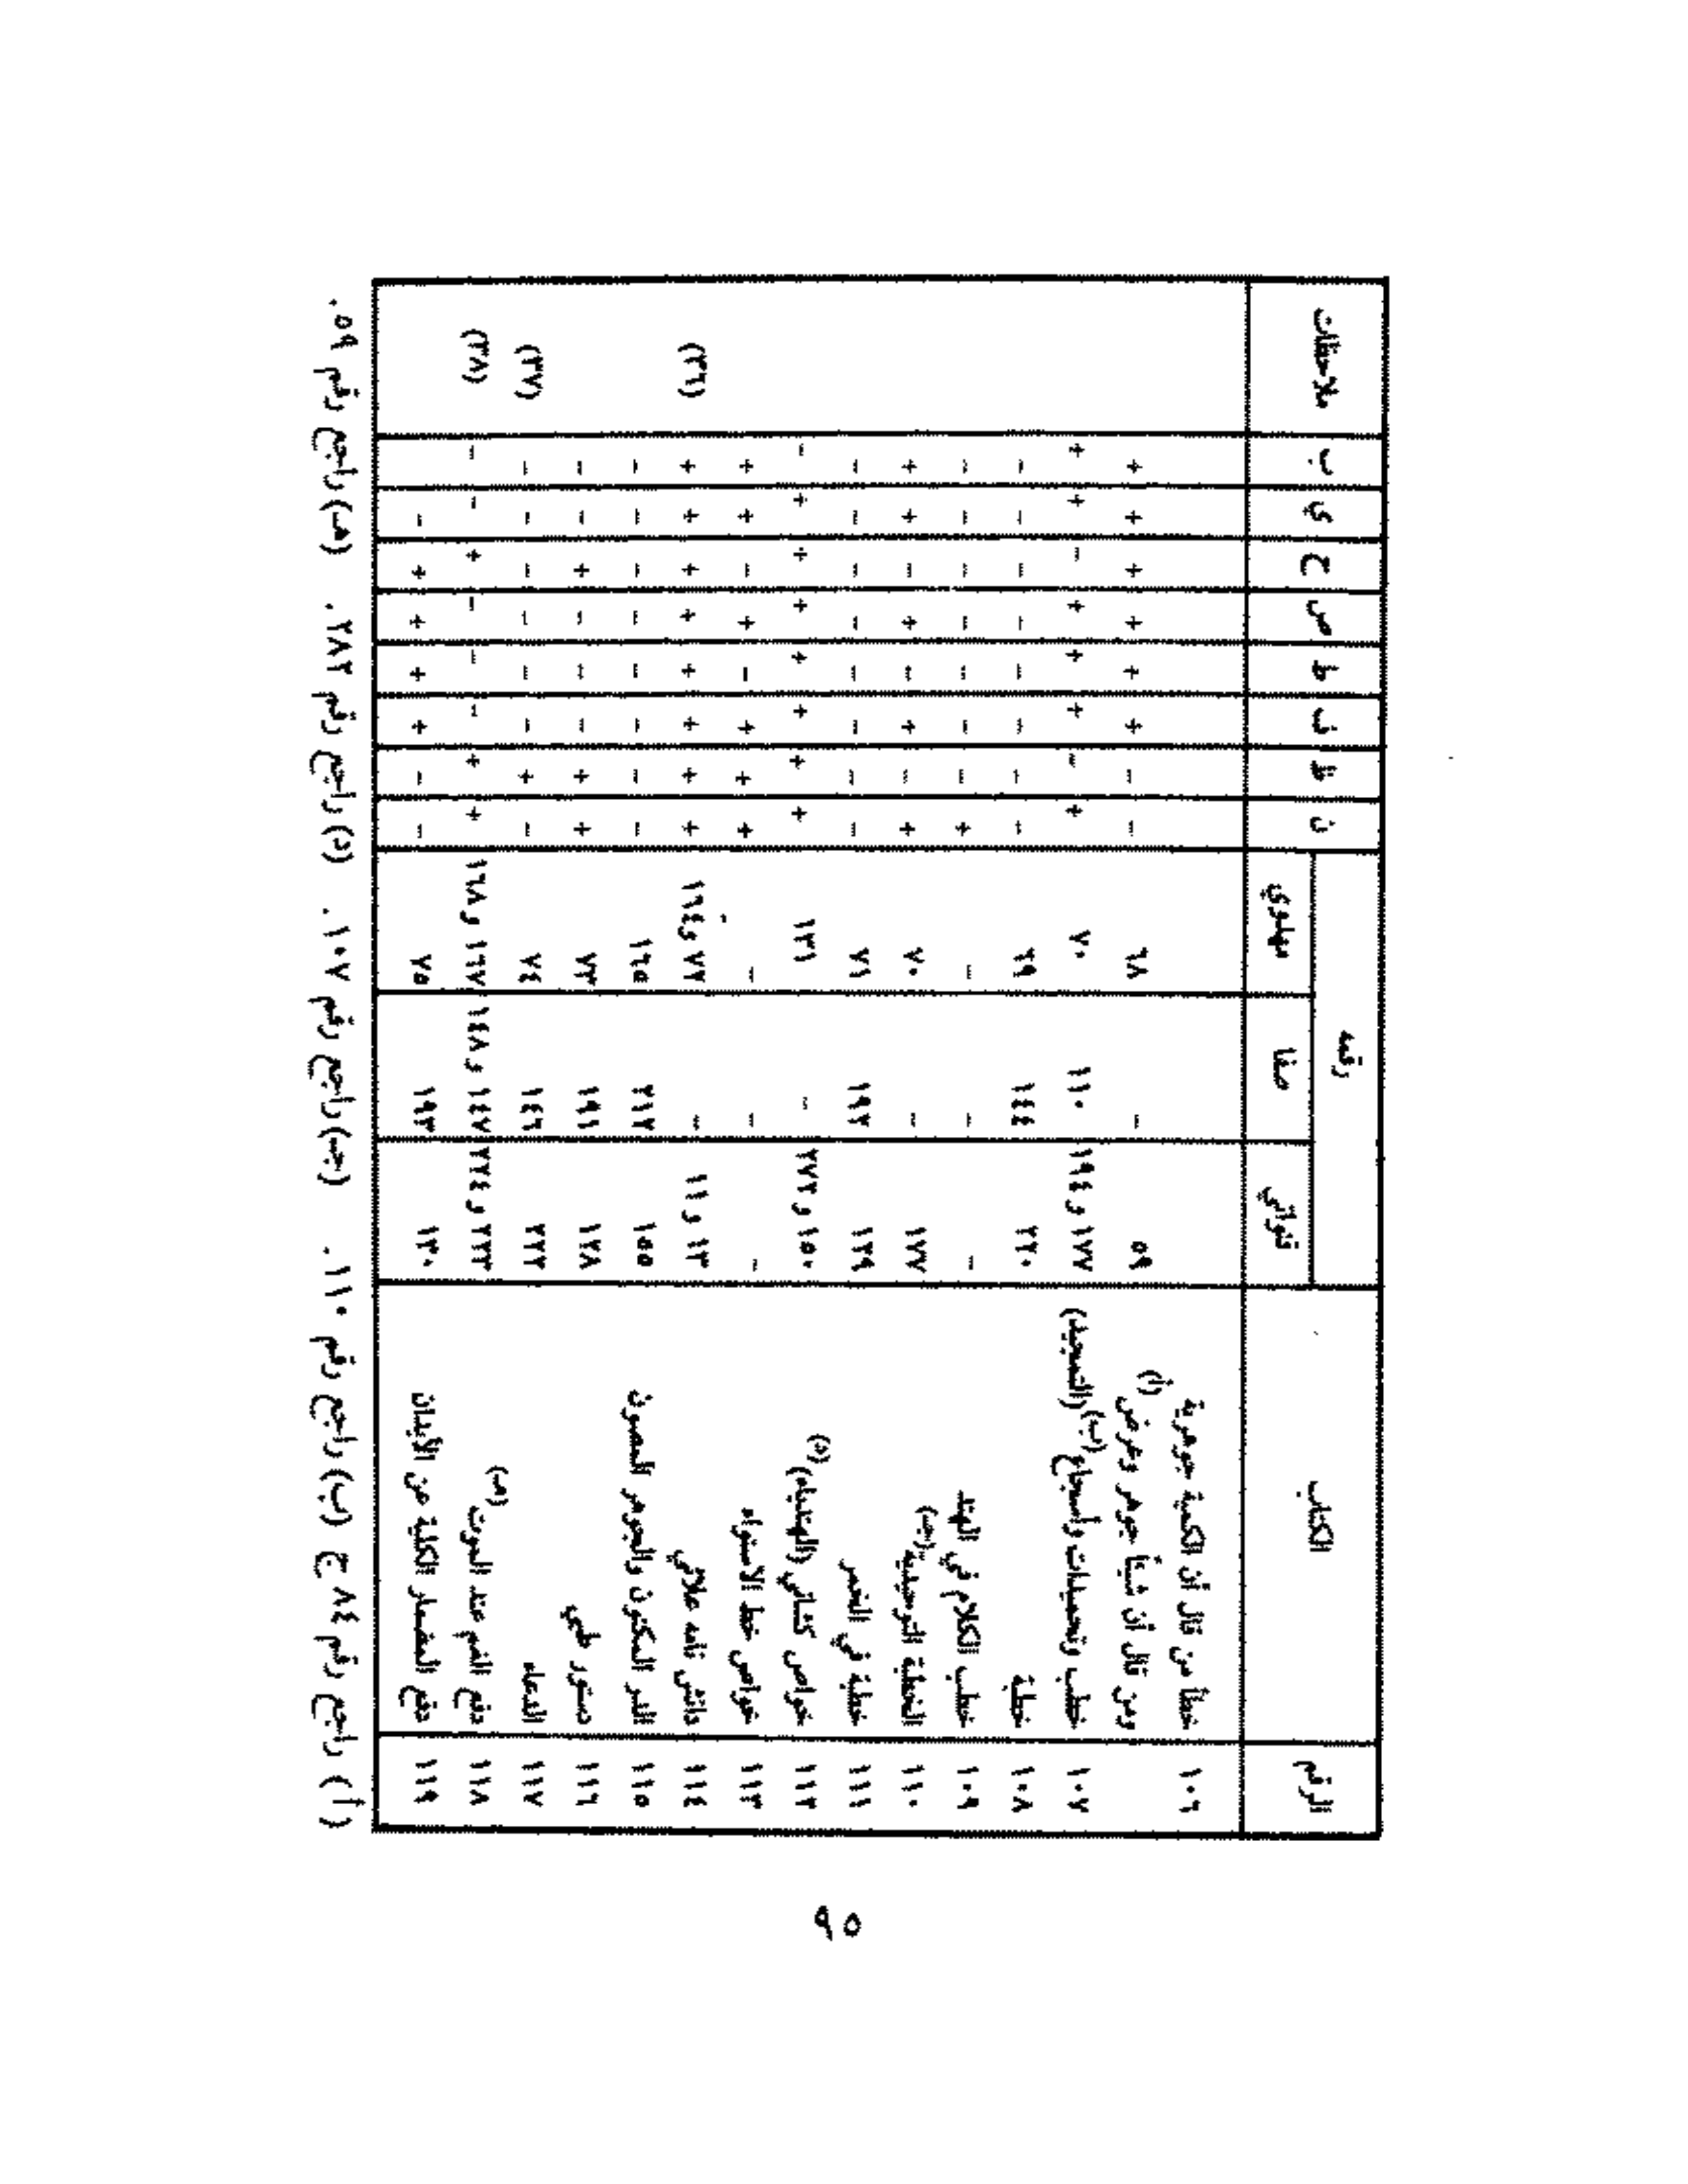 الرقم الكتاب رقمه ن ظ ف ط ص ح ي ب ملاحظات
قنواتي صفا مهدوي
١٠٦ خطأ من قال أن الكمية جوهرية
ومن قال أن شيئاً جوهر وعرض (أ) ٥٩ – ٦٨ – – + + + + + +
١٠٧ خطب وتحميدات وأسجاع (ب) (التمجيد) ١٧٧ و ١٩٤ ١١٠ ٧٠ + – + + + – + +
١٠٨ خطبة ٢٢٠ ١٤٤ ٦٩ – – – – – – – –
١٠٩ خطب الكلام في الهند – – – + – – – – – – –
١١٠ الخطبة التوحيدية (جـ) ١٧٧ – ٧٠ + – + – + – + +
١١١ خطبة في الخمر ١٢٩ ١٩٢ ٧١ – – – – – – – –
١١٢ خواص كشاني (الهندباء) (د) ١٥٠ و ٢٧٢ – ١٣١ + + + + + + + –
١١٣ خواص خط الاستواء – – – + + + – + – + +
١١٤ دانش نامه علائي ١٣ و ١١ – ٧٢ و ١٦٤ + + + + + + + + (٣٦)
١١٥ الدر المكنون والجوهر المصون ١٥٥ ٢١٢ ١٦٥ – – – – – – – –
١١٦ دستور طبي ١٢٨ ١٩١ ٧٣ + + – – – + – –
١١٧ الدعاء ٢٢٢ ١٤٦ ٧٤ – + – – – – – – (٣٧)
١١٨ دفع الغم عند الموت (هـ) ٢٢٣ و ٢٢٤ ١٤٧ و ١٤٨ ١٦٧ و ١٦٨ + + – – – + – – (٣٨)
١١٩ دفع المضار الكلية عن الأبدان ١٣٠ ١٩٣ ٧٥ – – + + + + –
(أ) راجع رقم ٨٤ ج (ب) راجع رقم ١١٠. (جـ) راجع رقم ١٠٧. (د) راجع رقم ٢٨٢. (هـ) راجع رقم ٥٩.
٩٥